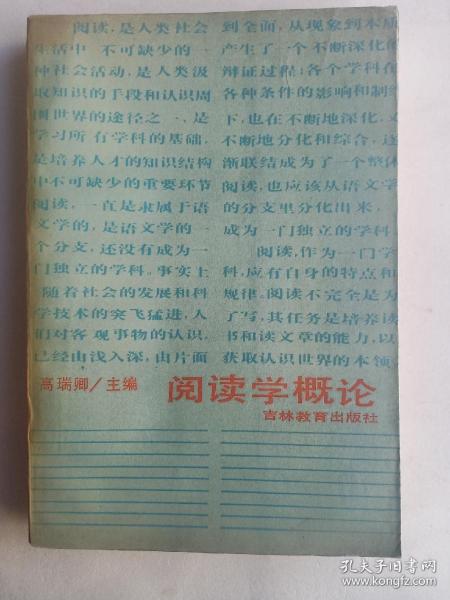 阅读,是人类社会
生活中 不可缺少的一
种社会活动,是人类汲
取知识的手段和认识周
围世界的途径之一,是
学习所有学科的基础,
是培养人才的知识结构
中不可缺少的重要环节
阅读,一直是隶属于语
文学的,是语文学的一
个分支,还没有成为一
门独立的学科。事实上
随着社会的发展和科
学技术的突飞猛进,人
们对客观事物的认识,
已经由浅入深,由片面
到全面,从现象到本质
产生了一个不断深化的
辩证过程;各个学科在
各种条件的影响和制约
下,也在不断地深化,
不断地分化和综合,逐
渐联结成为了一个整体
阅读,也应该从语文学
的分支里分化出来,
成为一门独立的学科
阅读,作为一门学
科,应有自身的特点和
规律。阅读不完全是为
了写,其任务是培养读
书和读文章的能力,以
获取认识世界的本领
高瑞卿/主编
阅读学概论
吉林教育出版社
孔夫子旧书网
www.kongfz.com